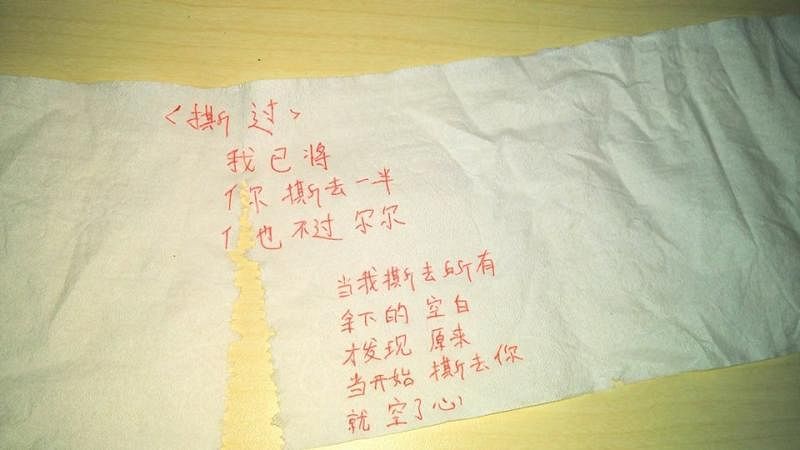 〈撕 过〉
我已将
你 撕去一半
亻也 不过 尔尔
当我撕去所有
余下的 空白
才发现 原来
当开始 撕去你
就 空了心